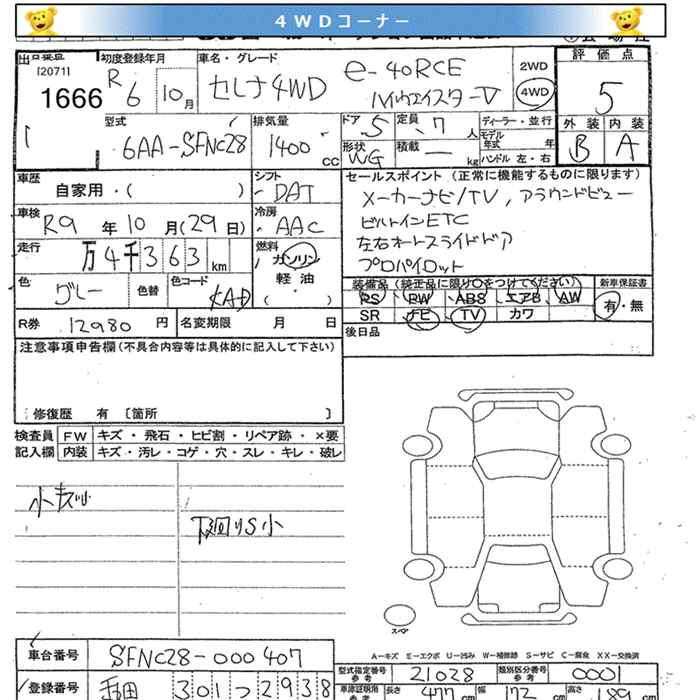 4WDコーナー
出
[2071]
1666
初度登録年月
R6 10月
車名・グレード
セレナ4WD
e-40RCE
ハイウェイスターV
2WD
4WD
評価点
5
外装 内装
B A
型式
6AA-SFNC28
排気量
1400 cc
ドア 5
定員 7人
形状 WG
積載 ー kg
ディーラー・並行
モデル年式 年
ハンドル 左・右
車歴
自家用・( )
シフト
DAT
車検
R9年10月(29日)
冷房
AAC
走行
万4千363km
燃料
ガソリン
軽油
( ・ )
色
グレー
色替
色コード
KAD
R券 12980円
名変期限 月 日
セールスポイント(正常に機能するものに限ります)
メーカーナビ/TV,アラウンドビュー
ビルトインETC
左右オートスライドドア
プロパイロット
装備品(純正品に限り○をつけてください)
新車保証書
PS PW ABS エアB AW
有・無
SR ナビ TV カワ
後日品
注意事項申告欄(不具合内容等は具体的に記入して下さい)
修復歴 有 〔箇所 〕
検査員 FW キズ・飛石・ヒビ割・リペア跡・×要
記入欄 内装 キズ・汚レ・コゲ・穴・スレ・キレ・破レ
小キズ
下廻りS小
スペア
A-キズ E-エクボ U-凹み W-補修跡 S-サビ C-腐食 XX-交換済
車台番号 SFNC28-000407
型式指定番号 参考 21028
類別区分番号 参考 0001
登録番号
301 つ 2938
車庫証明用 参考
長さ 477cm 幅 172cm 高さ 185cm